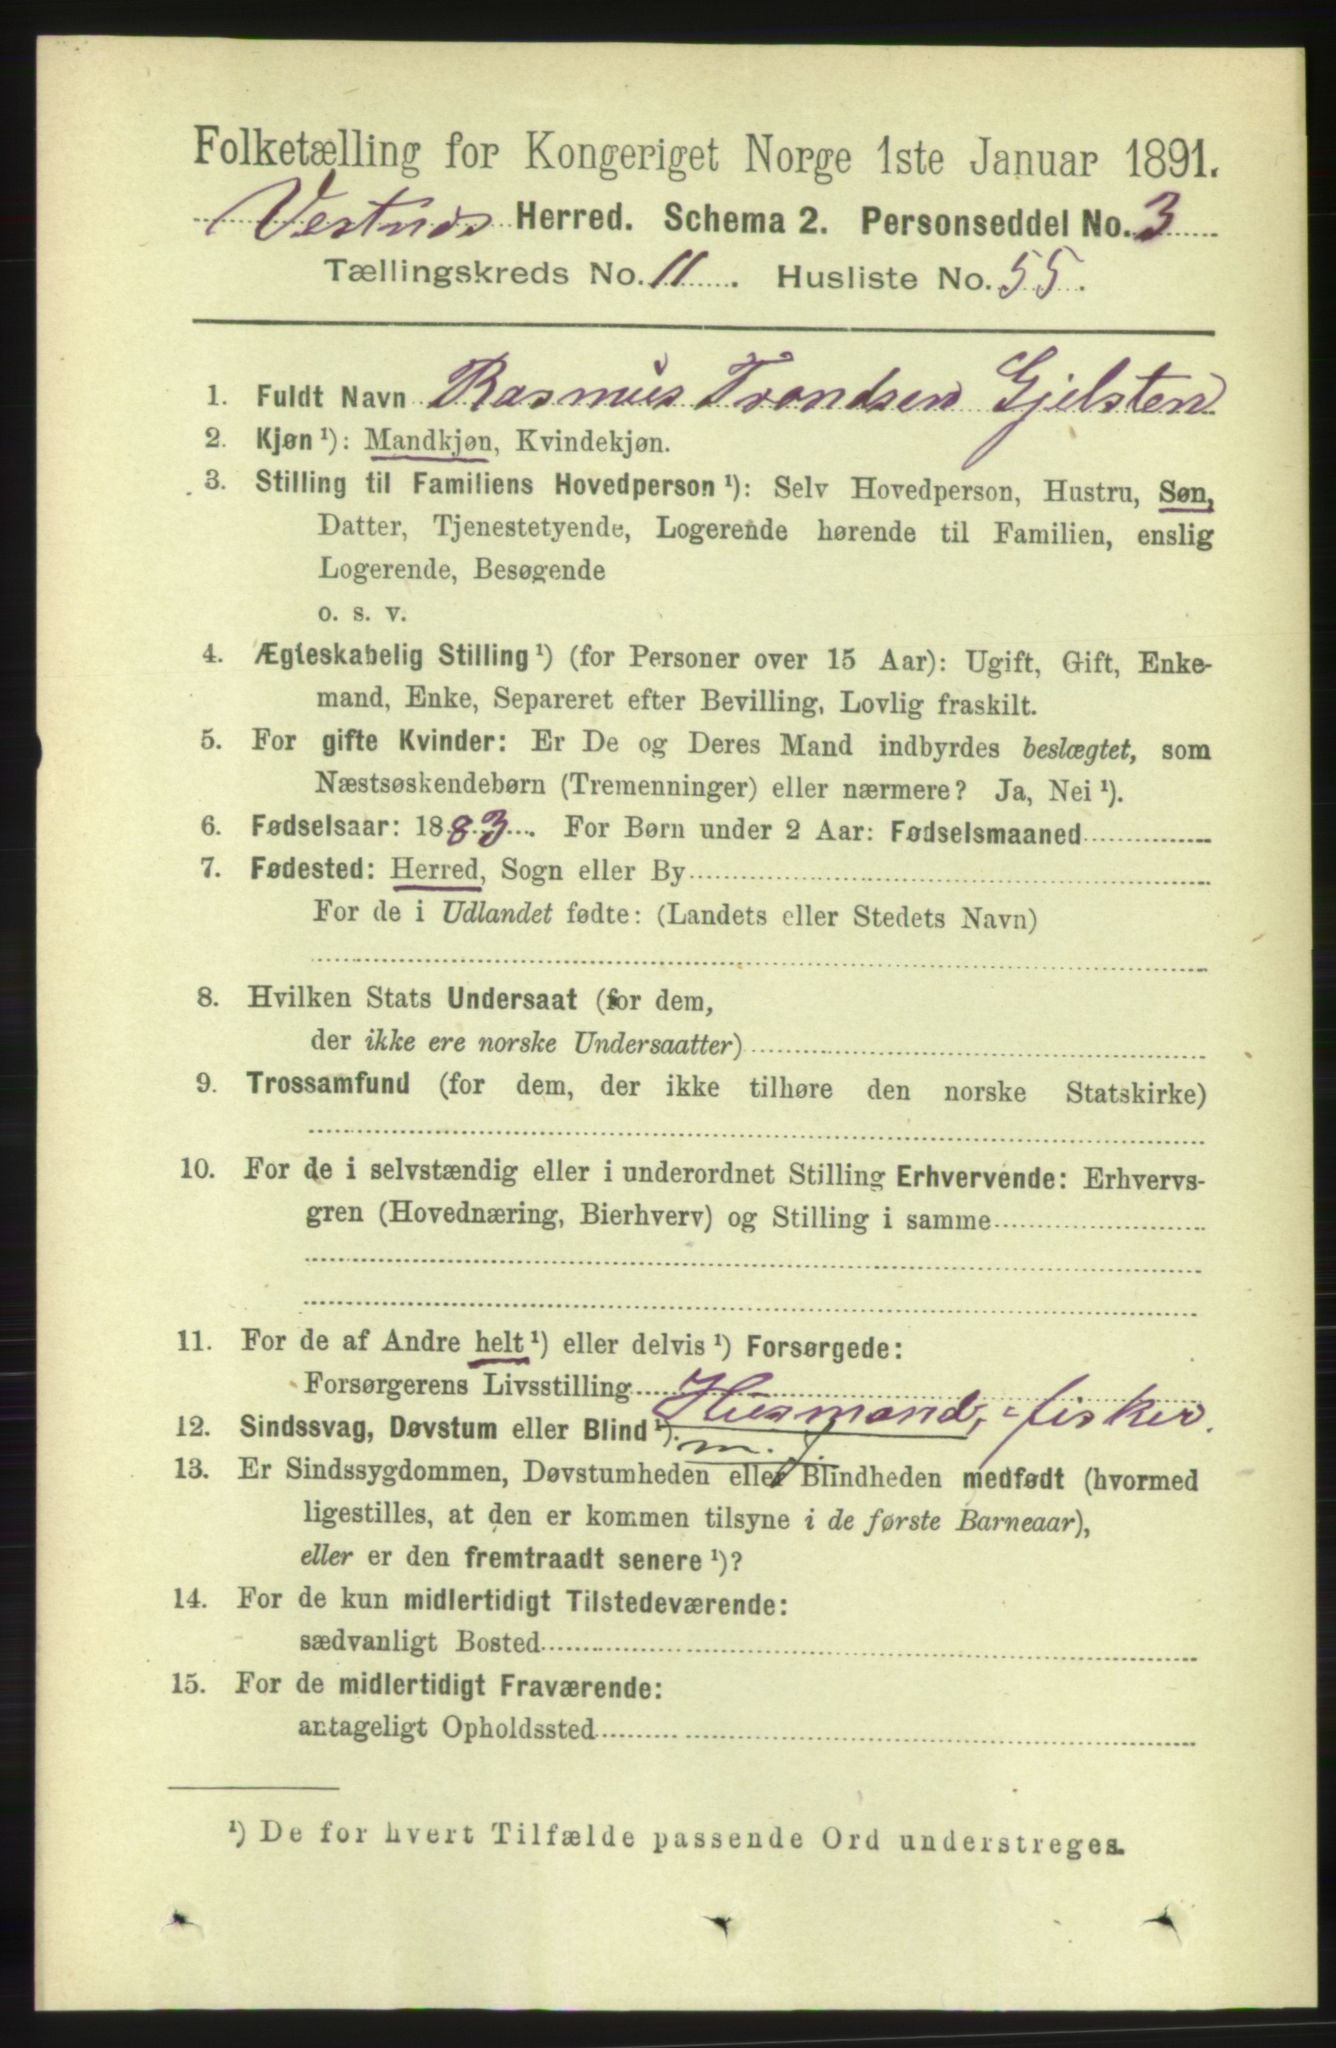 Folketælling for Kongeriget Norge 1ste Januar 1891.
Vestnes Herred. Schema 2. Personseddel No. 3
Tællingskreds No. 11. Husliste No. 55.
1. Fuldt Navn Rasmus Trondsen Gjelsten
2. Kjøn ¹): Mandkjøn, Kvindekjøn.
3. Stilling til Familiens Hovedperson ¹): Selv Hovedperson, Hustru, Søn,
Datter, Tjenestetyende, Logerende hørende til Familien, enslig
Logerende, Besøgende
o. s. v.
4. Ægteskabelig Stilling ¹) (for Personer over 15 Aar): Ugift, Gift, Enke-
mand, Enke, Separeret efter Bevilling, Lovlig fraskilt.
5. For gifte Kvinder: Er De og Deres Mand indbyrdes beslægtet, som
Næstsøskendebørn (Tremenninger) eller nærmere? Ja, Nei ¹).
6. Fødselsaar: 1883. For Børn under 2 Aar: Fødselsmaaned
7. Fødested: Herred, Sogn eller By
For de i Udlandet fødte: (Landets eller Stedets Navn)
8. Hvilken Stats Undersaat (for dem,
der ikke ere norske Undersaatter)
9. Trossamfund (for dem, der ikke tilhøre den norske Statskirke)
10. For de i selvstændig eller i underordnet Stilling Erhvervende: Erhvervs-
gren (Hovednæring, Bierhverv) og Stilling i samme
11. For de af Andre helt ¹) eller delvis ¹) Forsørgede:
Forsørgerens Livsstilling Husmand, fisker.
12. Sindssvag, Døvstum eller Blind ¹). m. j.
13. Er Sindssygdommen, Døvstumheden eller Blindheden medfødt (hvormed
ligestilles, at den er kommen tilsyne i de første Barneaar),
eller er den fremtraadt senere ¹)?
14. For de kun midlertidigt Tilstedeværende:
sædvanligt Bosted
15. For de midlertidigt Fraværende:
antageligt Opholdssted
¹) De for hvert Tilfælde passende Ord understreges.